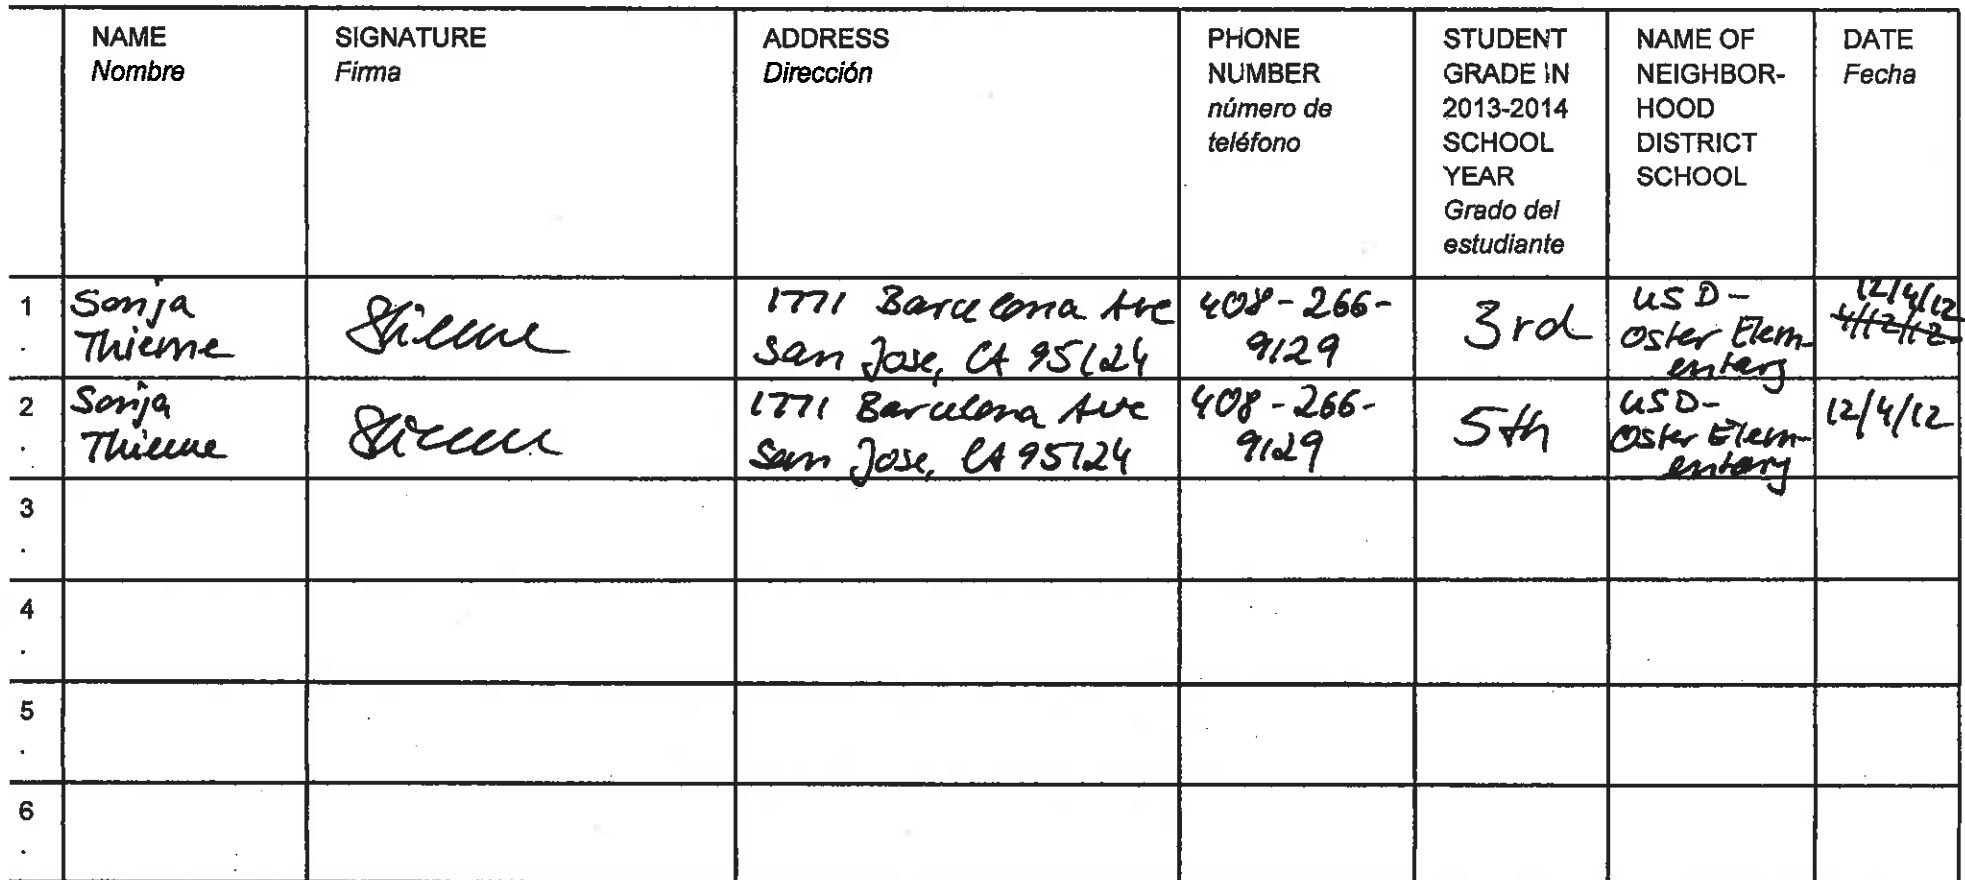 NAME
Nombre
SIGNATURE
Firma
ADDRESS
Dirección
PHONE
NUMBER
número de
teléfono
STUDENT
GRADE IN
2013-2014
SCHOOL
YEAR
Grado del
estudiante
NAME OF
NEIGHBOR-
HOOD
DISTRICT
SCHOOL
DATE
Fecha
1
.
Sonja
Thieme
SThieme
1771 Barcelona Ave
San Jose, CA 95124
408-266-
9129
3rd
USD-
Oster Elem-
entary
12/4/12
4/12/12
2
.
Sonja
Thieme
SThieme
1771 Barcelona Ave
San Jose, CA 95124
408-266-
9129
5th
USD-
Oster Elem-
entary
12/4/12
3
.
4
.
5
.
6
.